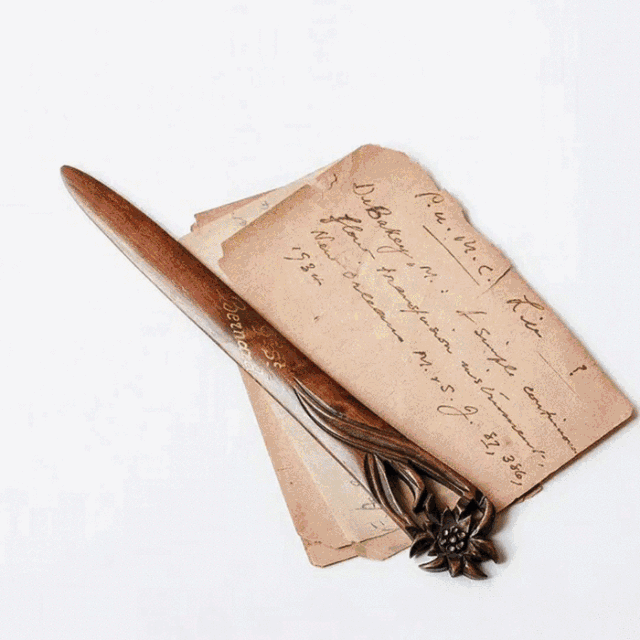 P.W.M.C. Lib ?
DeBakey, M. A simple continuous
flow transfusion instrument.
New Orleans M. & S. J. 87, 386,
1934
G. St
Bernard